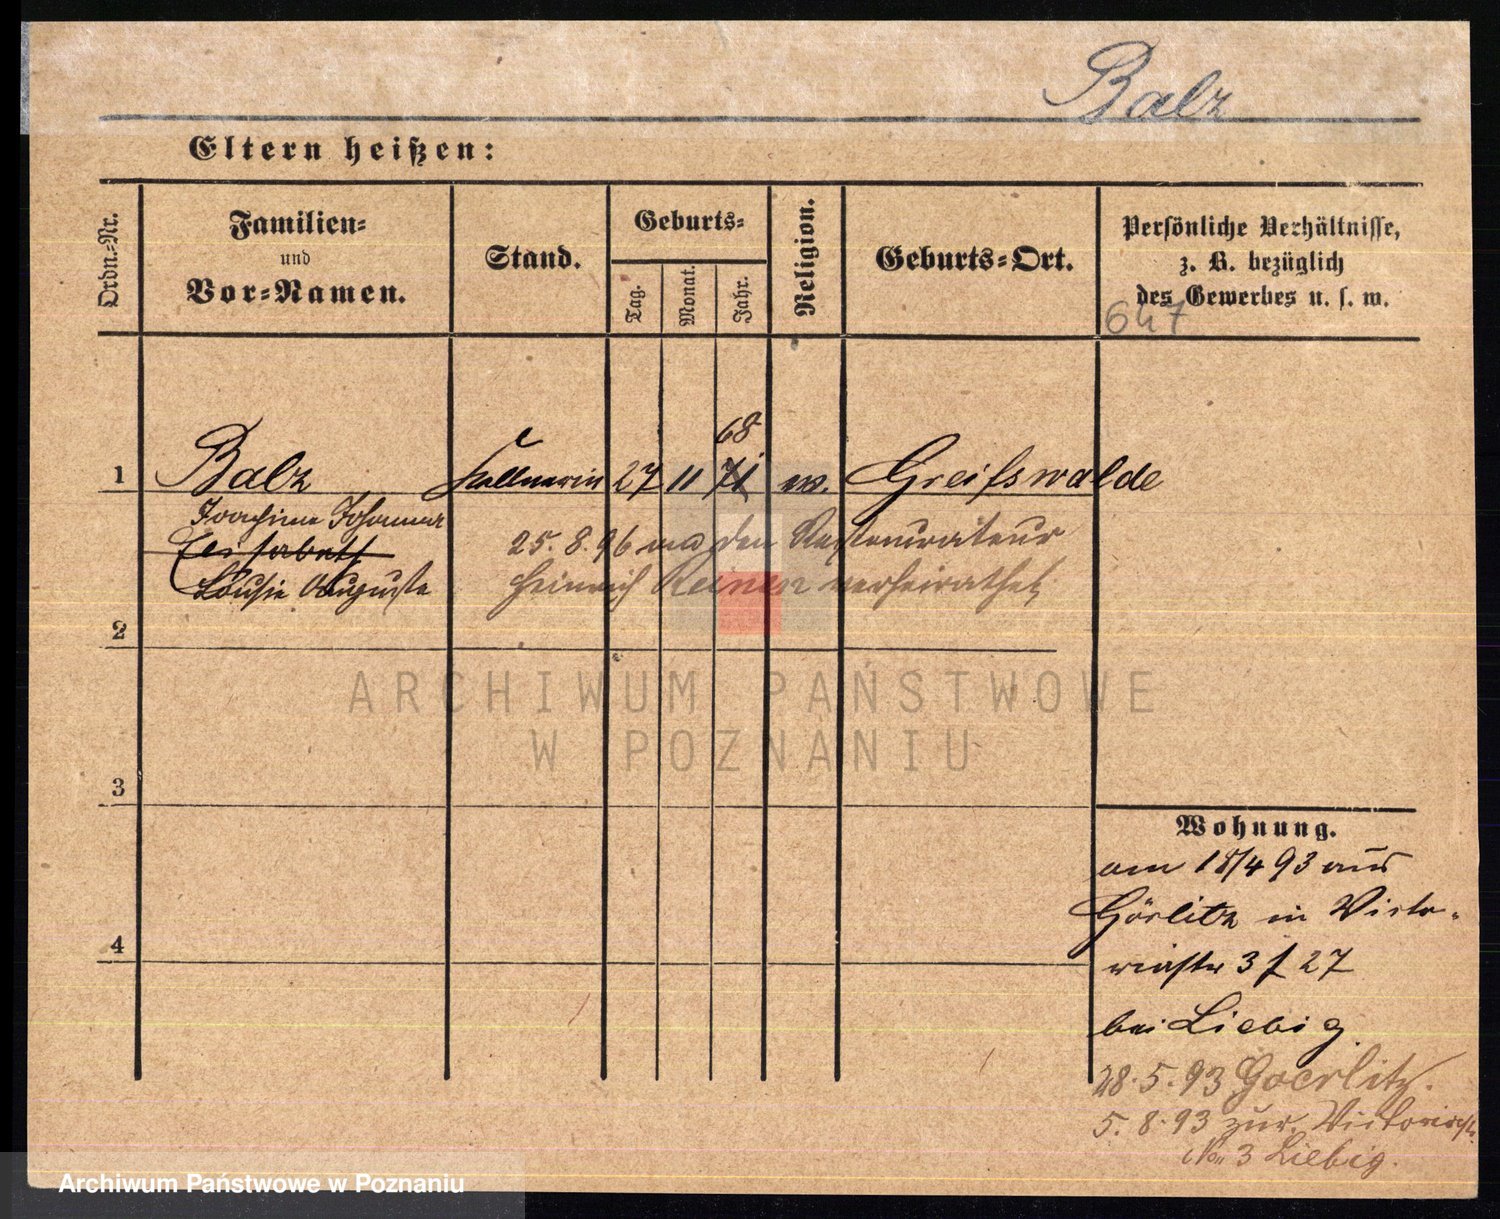 Balz
Eltern heißen:
Ordn.=Nr.
Familien=
und
Vor=Namen.
Stand.
Geburts=
Tag.
Monat.
Jahr.
Religion.
Geburts=Ort.
Persönliche Verhältnisse,
z. B. bezüglich
des Gewerbes u. s. w.
647
68
1 Balz Kellnerin 27 11 71 ev. Greifswalde
Joachime Johanna
Elisabeth
Louise Auguste
25. 8. 96 an den Restaurateur
Heinrich verheirathet
2
ARCHIWUM PAŃSTWOWE
W POZNANIU
3
4
Wohnung.
am 18/4 93 aus
Görlitz in Victo-
riastr 3 f 27
bei Liebig
28. 5. 93 Goerlitz.
5. 8. 93 zur. Victoriastr
No 3 Liebig.
Archiwum Państwowe w Poznaniu